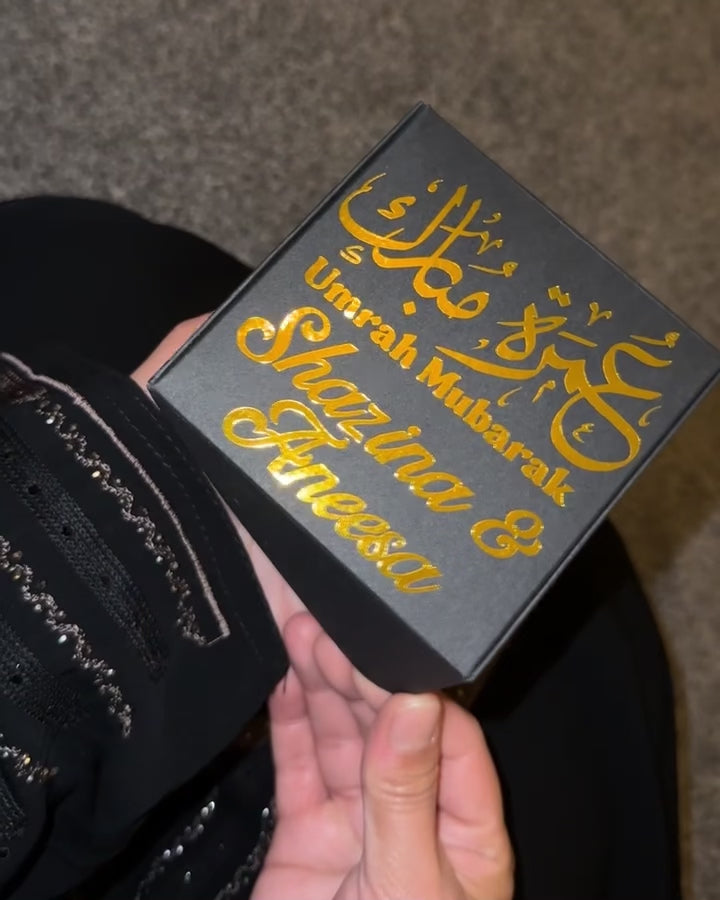 عمرة مباركة
Umrah Mubarak
Shazina &
Aneesa